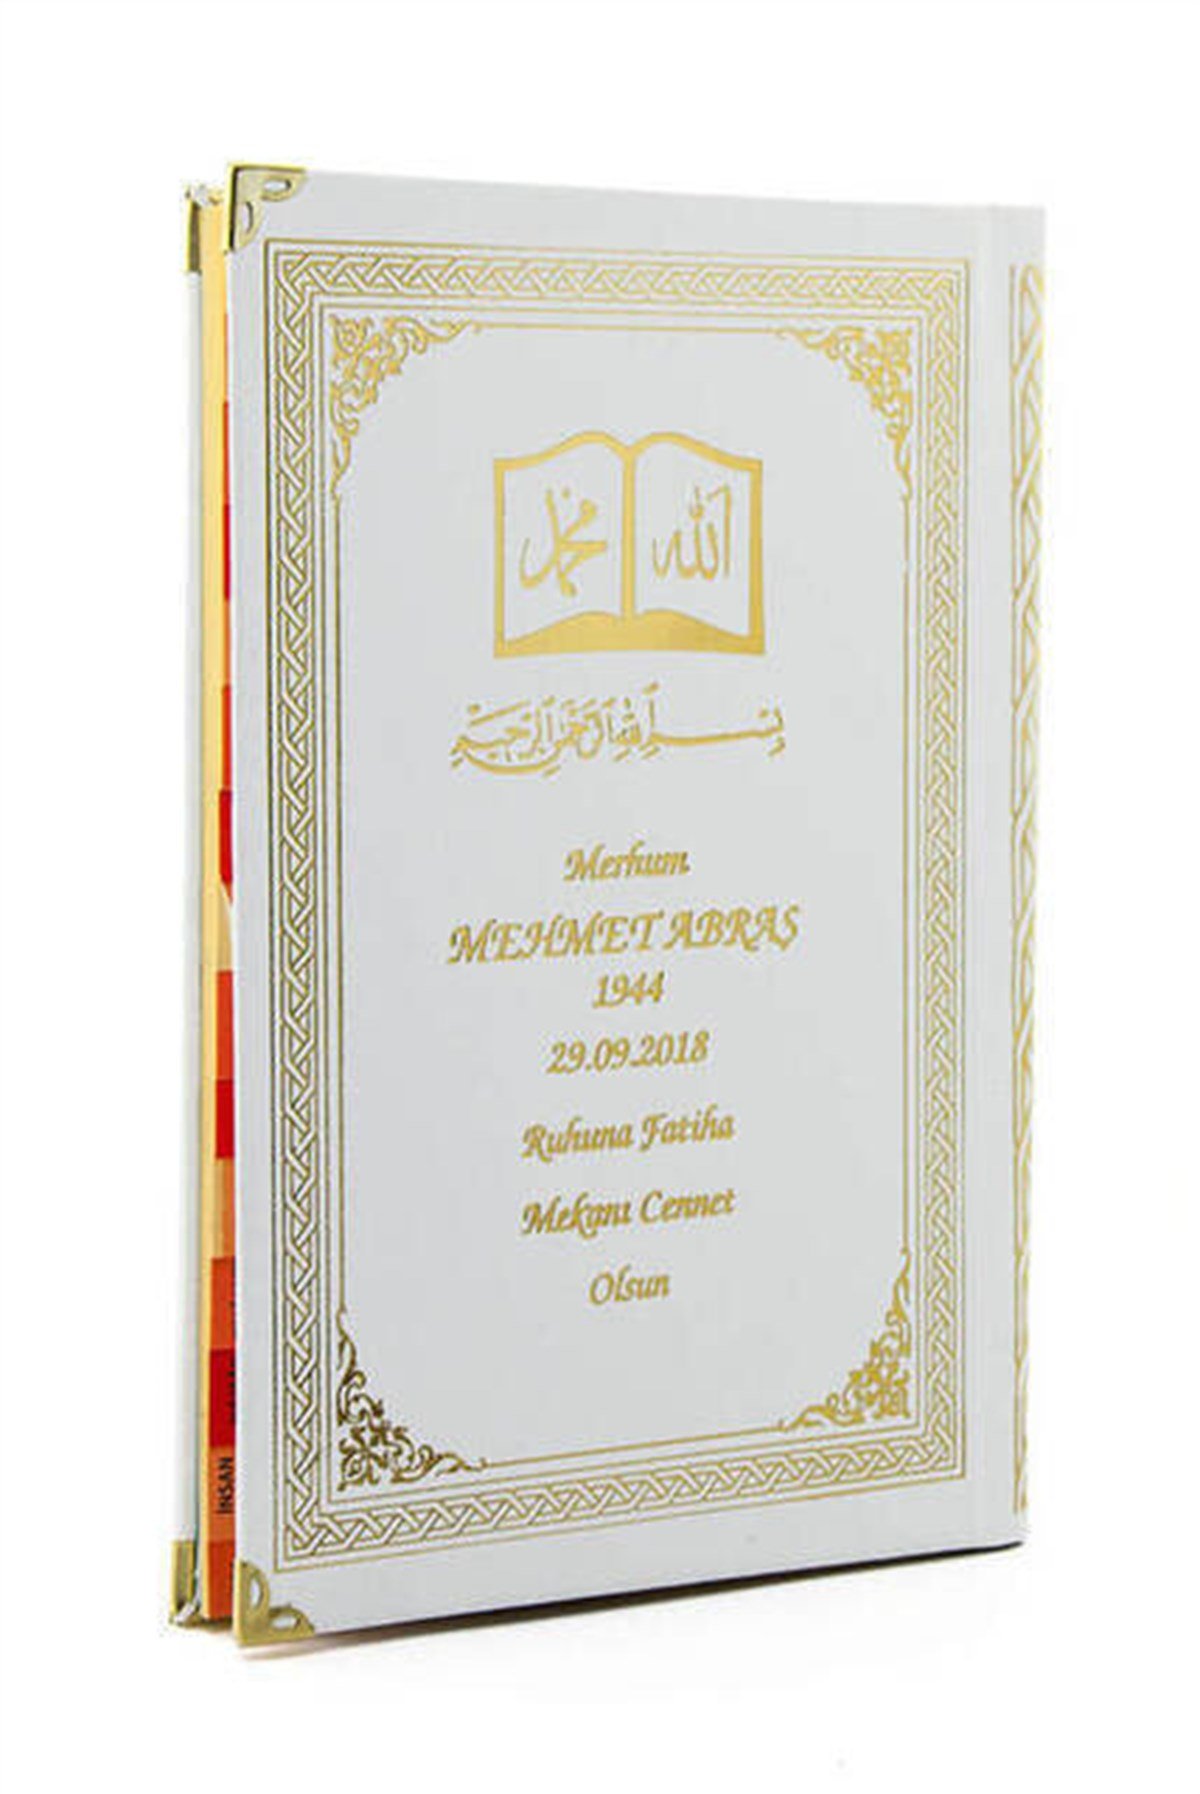 الله
محمد
بسم الله الرحمن الرحيم
Merhum
MEHMET ABRAŞ
1944
29.09.2018
Ruhuna Fatiha
Mekanı Cennet
Olsun
İNSAN